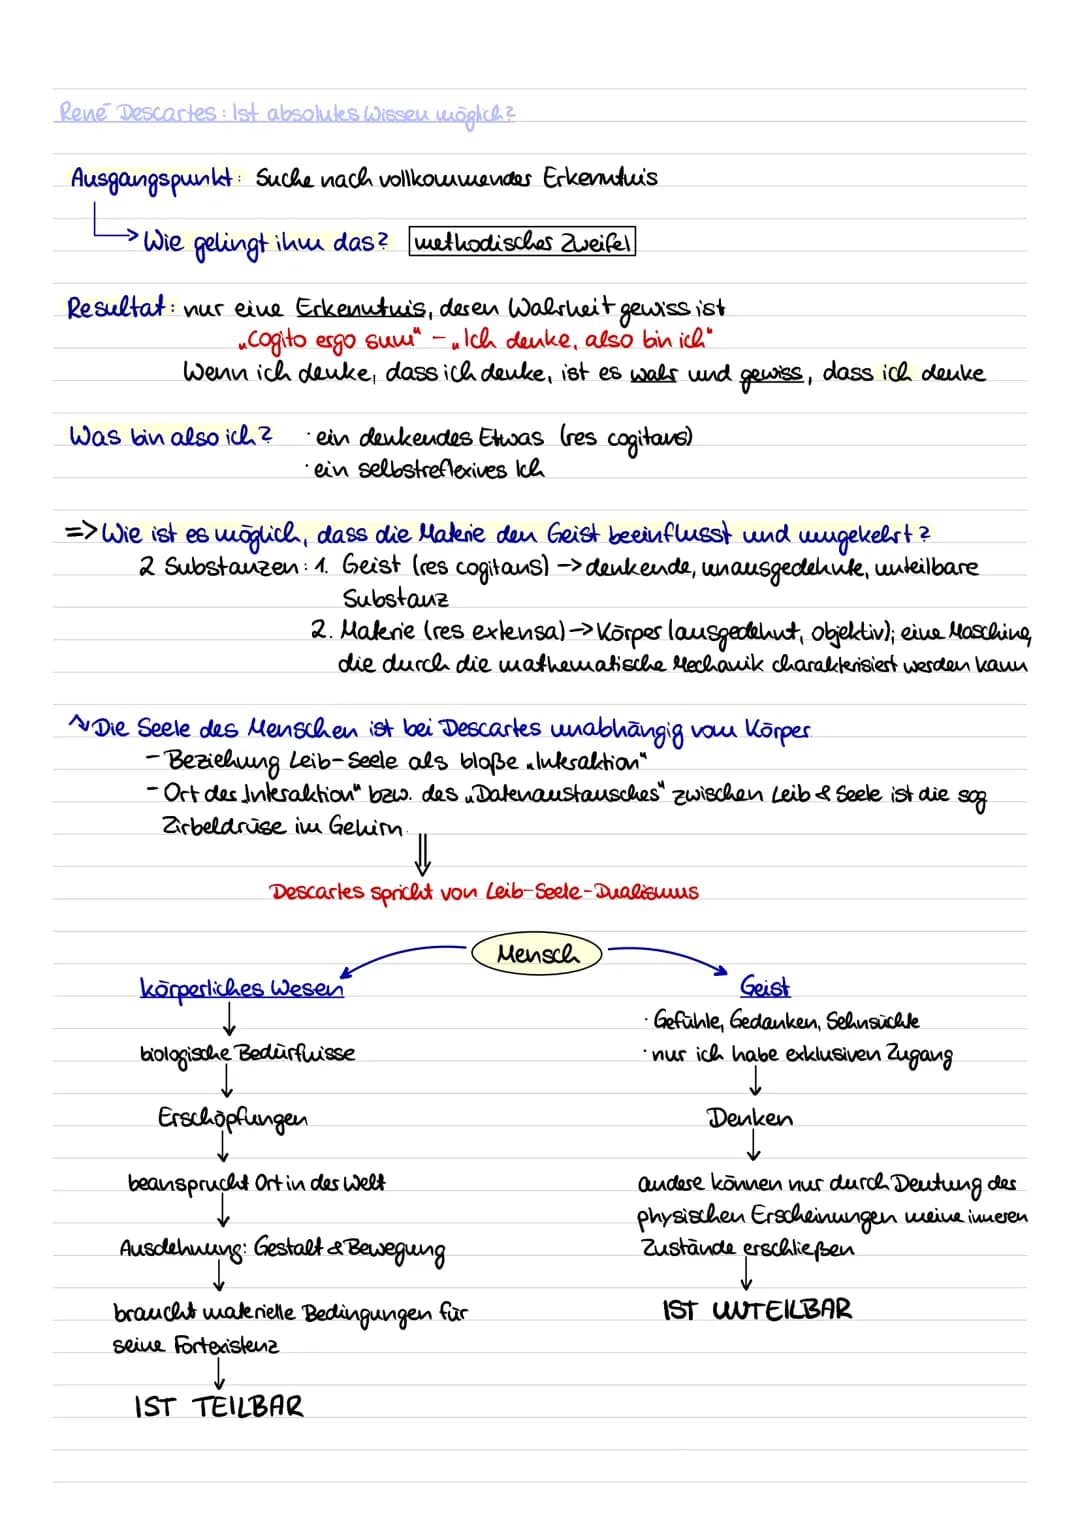 René Descartes: Ist absolutes Wissen möglich?
Ausgangspunkt: Suche nach vollkommender Erkenntnis
Wie gelingt ihm das? methodischer Zweifel
Resultat: nur eine Erkenntnis, deren Wahrheit gewiss ist
„Cogito ergo sum" - „Ich denke, also bin ich"
Wenn ich denke, dass ich denke, ist es wahr und gewiss, dass ich denke
Was bin also ich? · ein denkendes Etwas (res cogitans)
· ein selbstreflexives Ich
=> Wie ist es möglich, dass die Materie den Geist beeinflusst und umgekehrt?
2 Substanzen: 1. Geist (res cogitans) -> denkende, unausgedehnte, unteilbare
Substanz
2. Materie (res extensa) -> Körper (ausgedehnt, objektiv); eine Maschine,
die durch die mathematische Mechanik charakterisiert werden kann
Die Seele des Menschen ist bei Descartes unabhängig vom Körper
- Beziehung Leib-Seele als bloße „Interaktion"
- Ort der „Interaktion" bzw. des „Datenaustausches" zwischen Leib & Seele ist die sog
Zirbeldrüse im Gehirn.
Descartes spricht von Leib-Seele-Dualismus
Mensch
körperliches Wesen
biologische Bedürfnisse
Erschöpfungen
beansprucht Ort in der Welt
Ausdehnung: Gestalt & Bewegung
braucht materielle Bedingungen für
seine Fortexistenz
IST TEILBAR
Geist
· Gefühle, Gedanken, Sehnsüchte
· nur ich habe exklusiven Zugang
Denken
andere können nur durch Deutung der
physischen Erscheinungen meine inneren
Zustände erschließen
IST UNTEILBAR